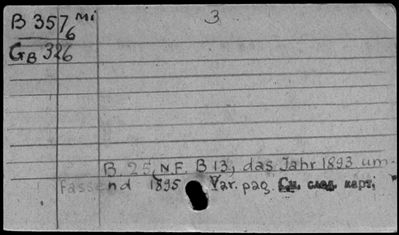 B 357/6 Mi 3
GB 326
B 25, N.F. B 13, das Jahr 1893 um-
fassend 1895 Var. pag. См. след. карт.